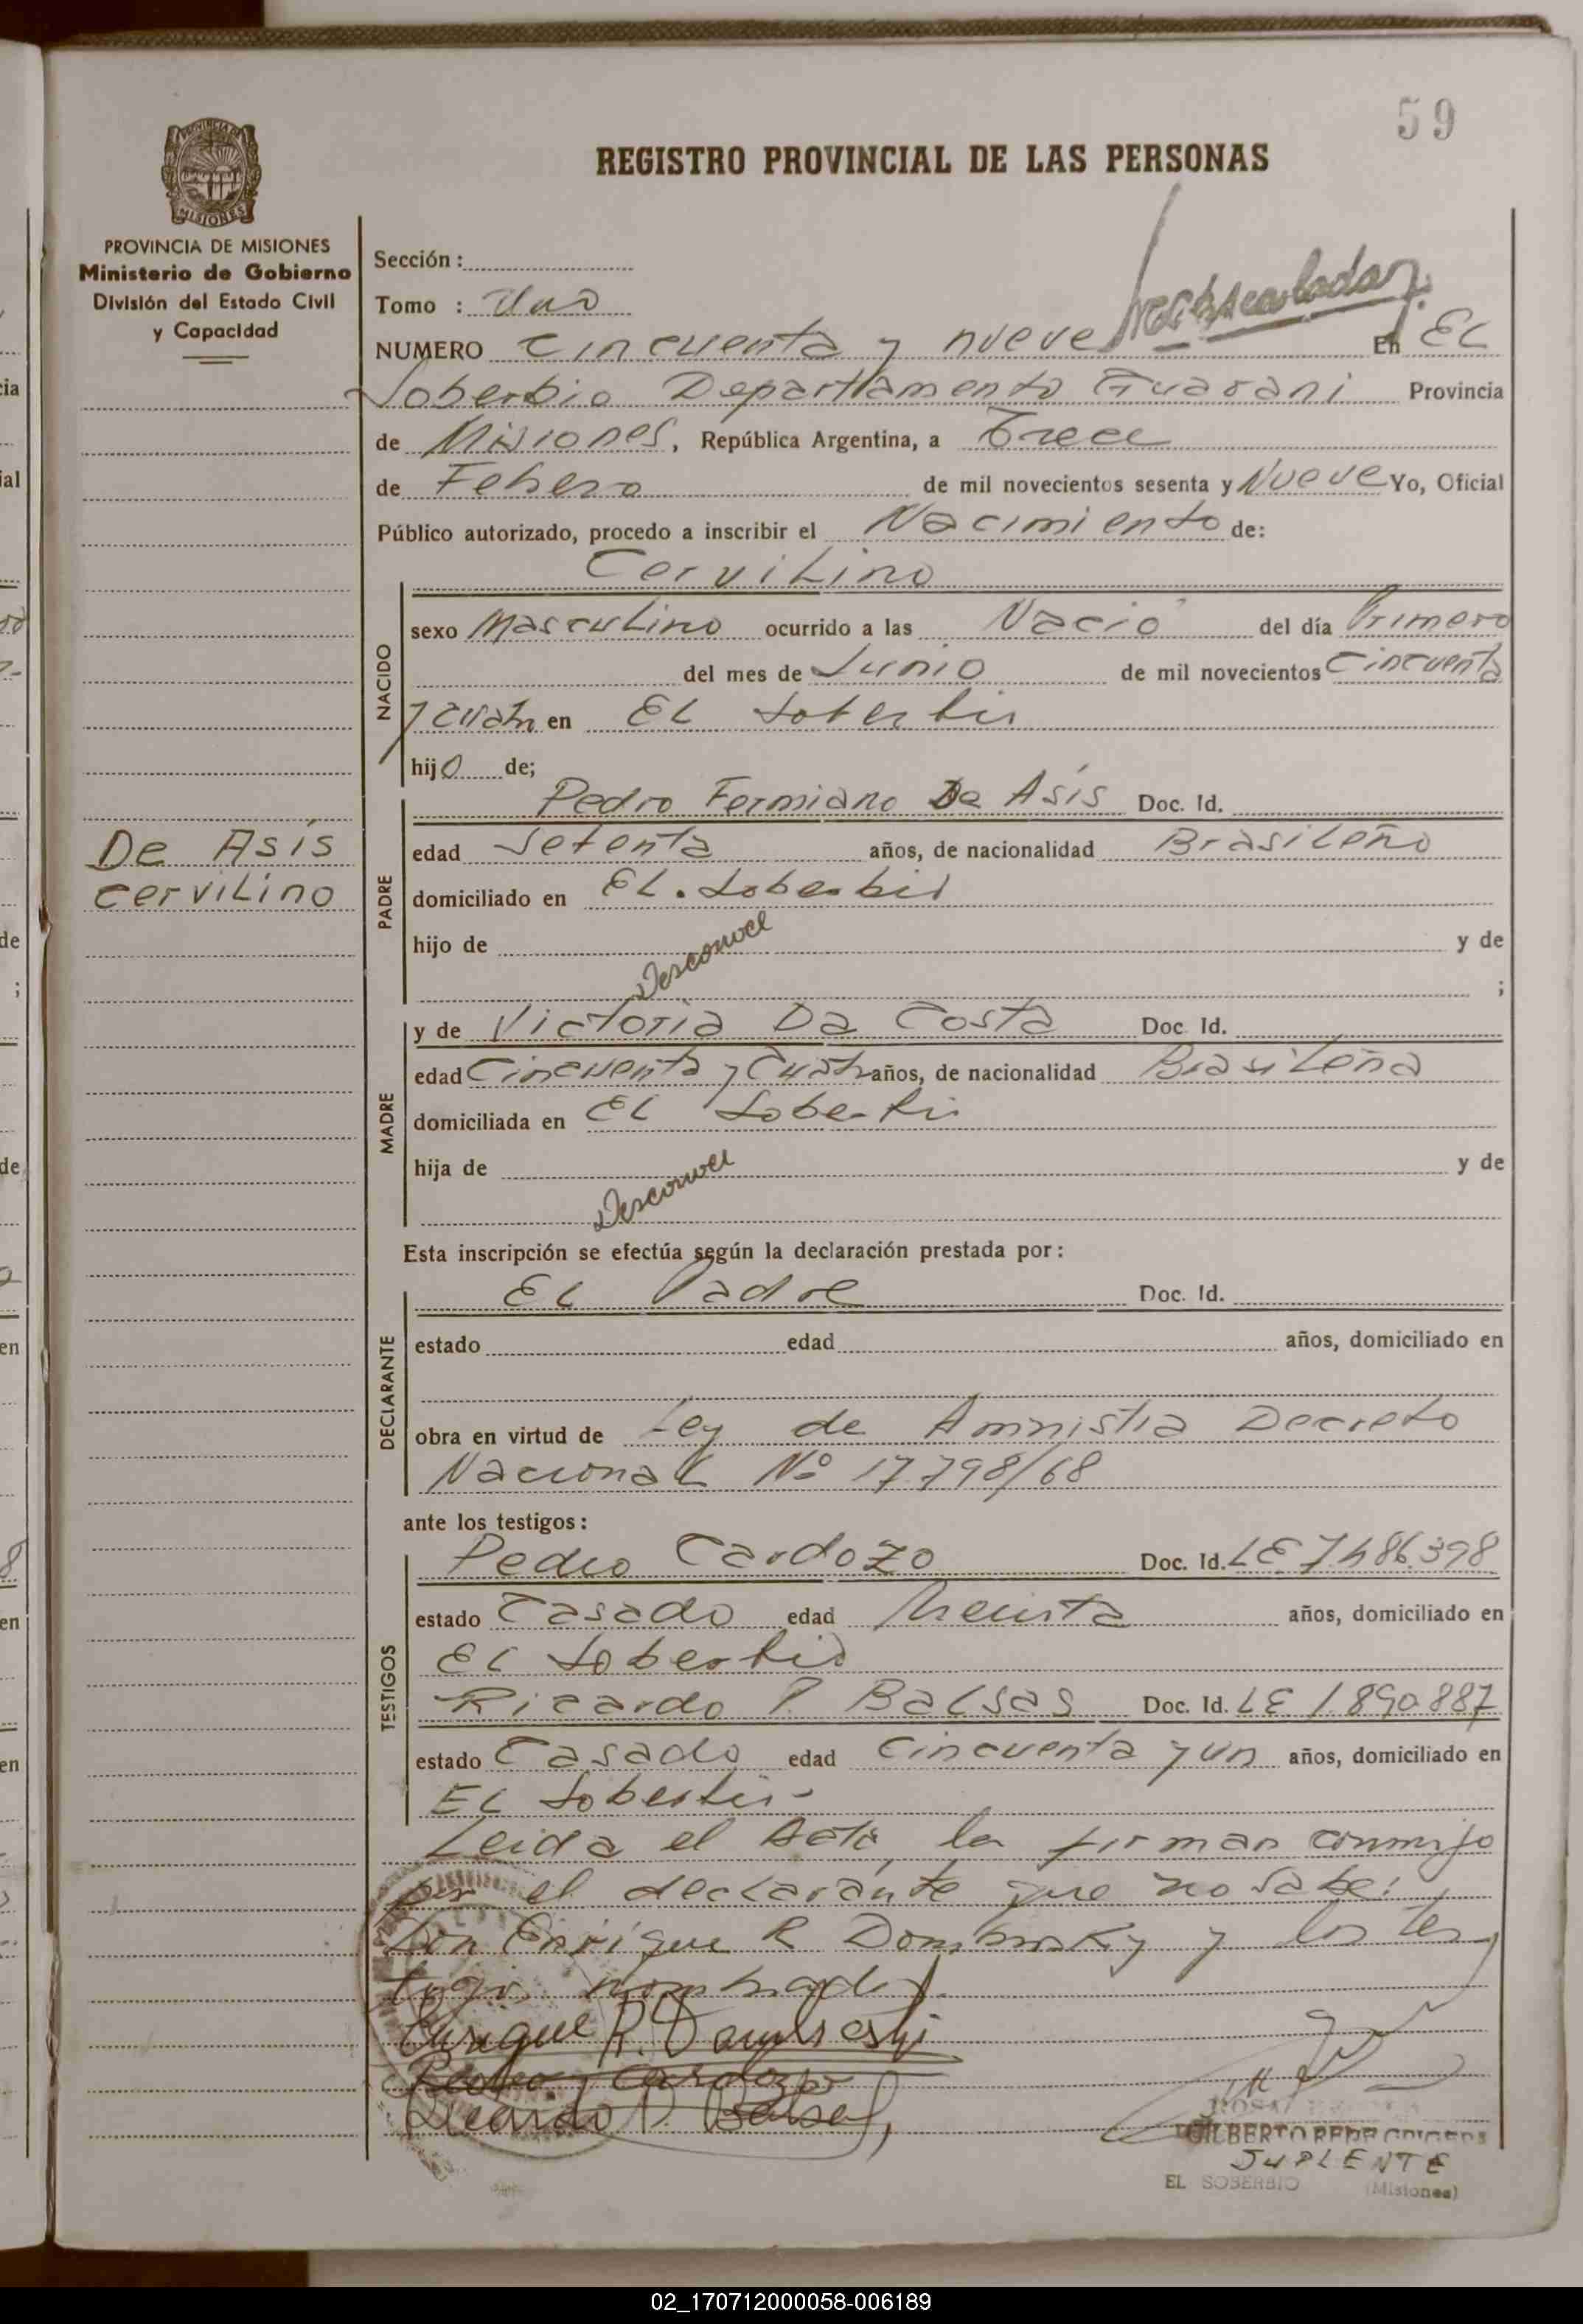 59
REGISTRO PROVINCIAL DE LAS PERSONAS
PROVINCIA DE MISIONES
MISIONES
PROVINCIA DE MISIONES
Ministerio de Gobierno
División del Estado Civil
y Capacidad
Sección :
Tomo : Uno
NUMERO cincuenta y nueve En EL
Soberbio Departamento Guarani Provincia
de Misiones, República Argentina, a Trece
de Febrero de mil novecientos sesenta y Nueve Yo, Oficial
Público autorizado, procedo a inscribir el Nacimiento de:
Cervilino
NACIDO
sexo Masculino ocurrido a las Nació del día Primero
del mes de Junio de mil novecientos Cincuenta
y cuatro en EL Soberbio
hijo de;
De Asís
CervILino
PADRE
Pedro Fermiano De Asís Doc. Id.
edad Setenta años, de nacionalidad Brasileño
domiciliado en EL. Soberbio
hijo de Desconoce y de
;
MADRE
y de Victoria Da Costa Doc. Id.
edad Cincuenta y Cuatro años, de nacionalidad Brasileña
domiciliada en EL Soberbio
hija de Desconoce y de
Esta inscripción se efectúa según la declaración prestada por:
DECLARANTE
EL Padre Doc. Id.
estado edad años, domiciliado en
obra en virtud de Ley de Amnistia Decreto
Nacional Nº 17.798/68
ante los testigos:
TESTIGOS
Pedro Cardozo Doc. Id. LE 7.486.398
estado Casado edad Treinta años, domiciliado en
EL Soberbio
Ricardo P. Balsas Doc. Id. LE 1.890.887
estado Casado edad Cincuenta y un años, domiciliado en
EL Soberbio-
Leida el Acta, la firman conmigo
por el declarante que no sabe:
Don Enrique R. y los tes
tigos nombrados.
Enrique R.
Pedro Cardozo
Ricardo P. Balsas
GILBERTO
SUPLENTE
EL SOBERBIO (Misiones)
02_170712000058-006189